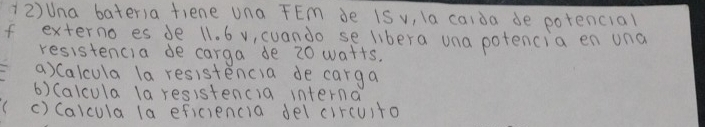 2) Una bateria tiene una FEM de 15 v, la caida de potencial
externo es de 11.6 v, cuando se libera una potencia en una
resistencia de carga de 20 watts.
a) Calcula la resistencia de carga
b) Calcula la resistencia interna
c) Calcula la eficiencia del circuito